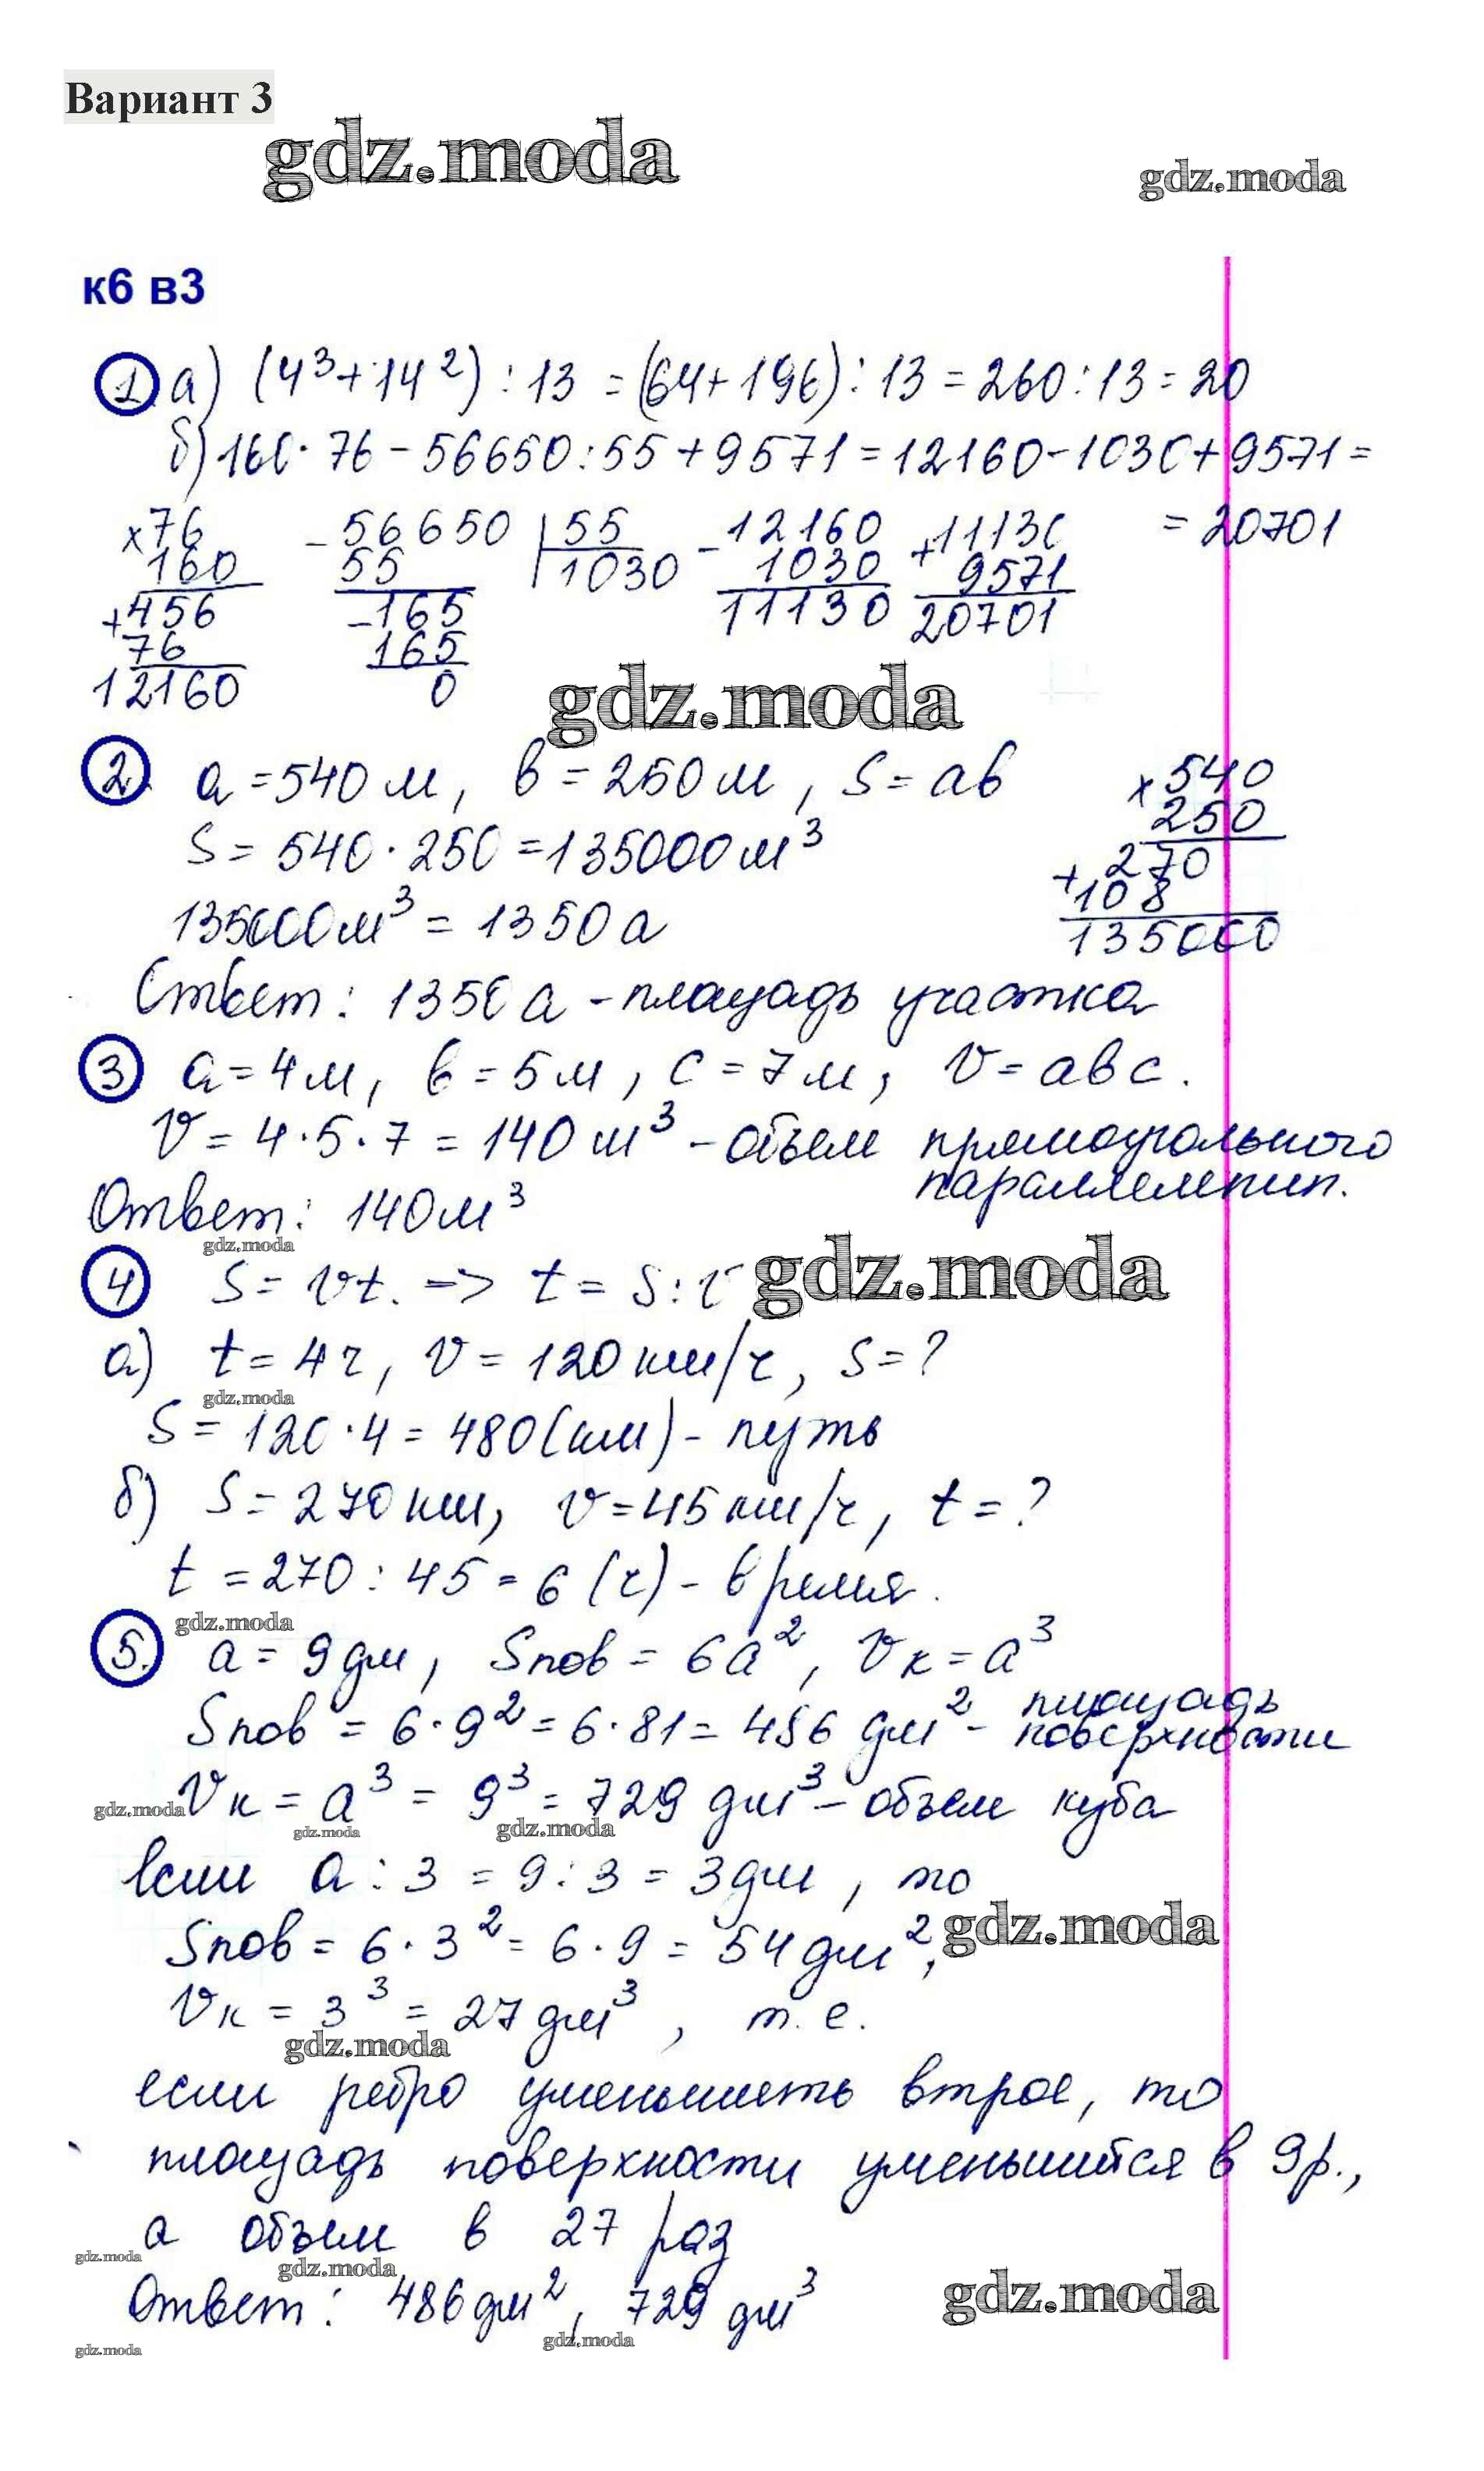 Вариант 3
gdz.moda
gdz.moda
к6 в3
1. а) (4³+14²):13 = (64+196):13 = 260:13 = 20
б) 160·76-56650:55+9571=12160-1030+9571=
= 20701
×76
160
+456
76
12160
-56650 |55
55 1030
-165
165
0
-12160
1030
11130
+11130
9571
20701
2. a=540м, b=250м, S=ab
S=540·250=135000м³
135000м³=1350а
×540
250
+270
108
135000
Ответ: 1350а-площадь участка
gdz.moda
3 a=4м, b=5м, c=7м, V=abc.
V=4·5·7=140м³-объем прямоугольного
параллелепип.
Ответ: 140м³
gdz.moda
4 S=Vt. => t=S:V
gdz.moda
а) t=4ч, V=120км/ч, S=?
gdz.moda
S=120·4=480(км)-путь
б) S=270км, V=45км/ч, t=?
t=270:45=6(ч)-время.
gdz.moda
5. a=9дм, Sпов=6a², Vк=a³
Sпов=6·9²=6·81=486дм²- площадь
поверхности
Vк=a³=9³=729дм³-объем куба
gdz.moda
gdz.moda
gdz.moda
если a:3=9:3=3дм, то
Sпов=6·3²=6·9=54дм²,
gdz.moda
Vк=3³=27дм³, т.е.
gdz.moda
если ребро уменьшить втрое, то
площадь поверхности уменьшится в 9р.,
а объем в 27 раз
gdz.moda
gdz.moda
Ответ: 486дм², 729дм³
gdz.moda
gdz.moda
gdz.moda